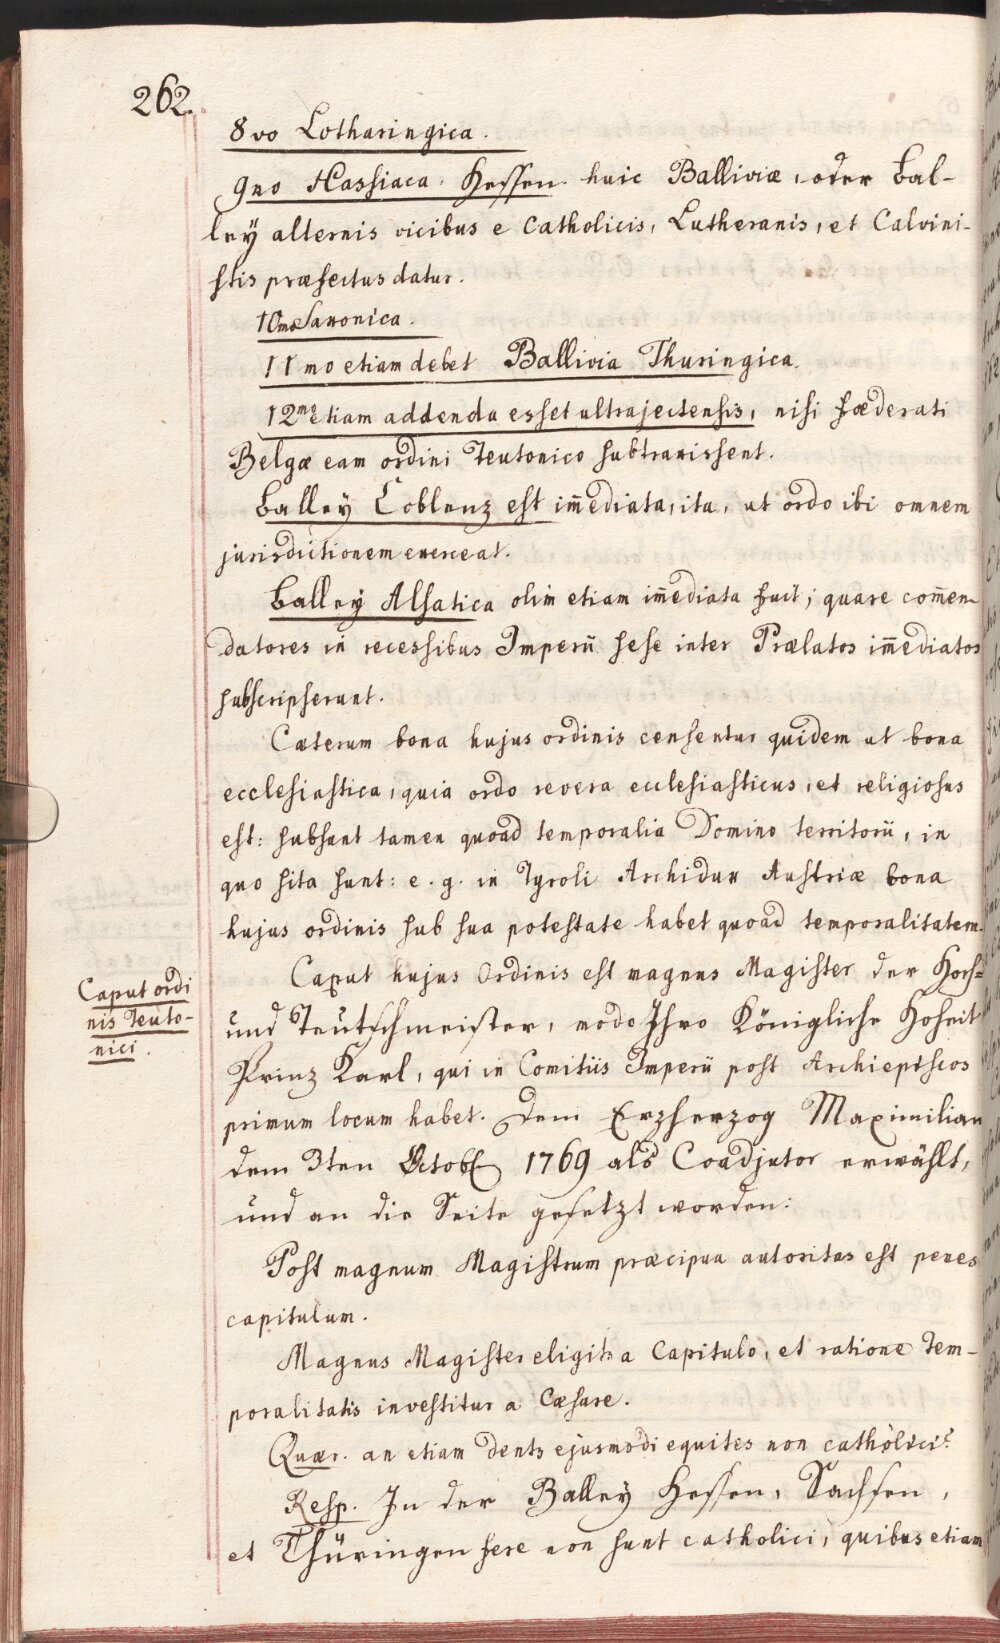 262.
8vo Lotharingica.
9no Hassiaca. Hessen. huic Balliviæ, oder Bal-
leÿ alternis vicibus e Catholicis, Lutheranis, et Calvini-
stis præfectus datur.
10mo Saxonica.
11mo etiam debet Ballivia Thuringica.
12mo etiam addenda esset ultrajectensis, nisi fœderati
Belgæ eam ordini Teutonico subtraxissent.
Balley Coblenz est im̄ediata, ita, ut ordo ibi omnem
jurisdictionem exerceat.
Balleÿ Alsatica olim etiam im̄ediata fuit; quare com̄en-
datores in recessibus Imperii sese inter Prælatos im̄ediatos
subscripserunt.
Cæterum bona hujus ordinis censentur quidem ut bona
ecclesiastica, quia ordo revera ecclesiasticus, et religiosus
est: subsunt tamen quoad temporalia Domino territorii, in
quo sita sunt: e. g. in Tyroli Archidux Austriæ bona
hujus ordinis sub sua potestate habet quoad temporalitatem.
Caput hujus Ordinis est magnus Magister der Hoch-
Caput ordi
nis Teuto-
nici.
und Teutschmeister, modo Ihro Königliche Hoheit
Prinz Karl, qui in Comitiis Imperii post Archiepiscos
primum locum habet. Dem Erzherzog Maximilian
dem 3ten Octob. 1769 als Coadjutor erwählt,
und an die Seite gesetzt worden:
Post magnum Magistrum præcipua autoritas est penes
capitulum.
Magnus Magister eligitr a Capitulo, et ratione tem-
poralitatis investitur a Cæsare.
Quær. an etiam dentr ejusmodi equites non catholici?
Resp. In der Balley Hessen, Sachsen,
et Thüringen fere non sunt catholici, quibus etiam